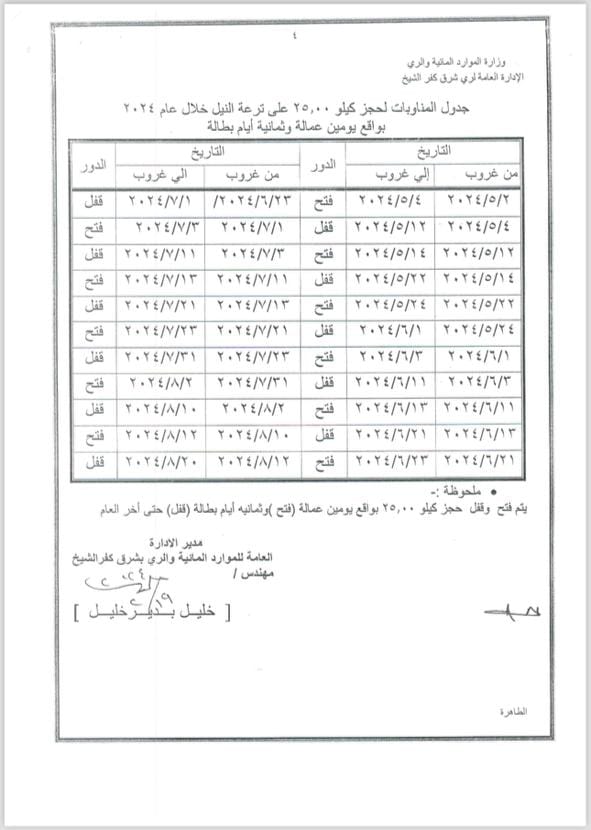 ٤
وزارة الموارد المائية والري
الإدارة العامة لري شرق كفر الشيخ
جدول المناوبات لحجز كيلو ٢٥,٠٠ على ترعة النيل خلال عام ٢٠٢٤
بواقع يومين عمالة وثمانية أيام بطالة
التاريخ الدور التاريخ الدور
من غروب إلي غروب من غروب الي غروب
٢٠٢٤/٥/٢ ٢٠٢٤/٥/٤ فتح ٢٠٢٤/٦/٢٣/ ٢٠٢٤/٧/١ قفل
٢٠٢٤/٥/٤ ٢٠٢٤/٥/١٢ قفل ٢٠٢٤/٧/١ ٢٠٢٤/٧/٣ فتح
٢٠٢٤/٥/١٢ ٢٠٢٤/٥/١٤ فتح ٢٠٢٤/٧/٣ ٢٠٢٤/٧/١١ قفل
٢٠٢٤/٥/١٤ ٢٠٢٤/٥/٢٢ قفل ٢٠٢٤/٧/١١ ٢٠٢٤/٧/١٣ فتح
٢٠٢٤/٥/٢٢ ٢٠٢٤/٥/٢٤ فتح ٢٠٢٤/٧/١٣ ٢٠٢٤/٧/٢١ قفل
٢٠٢٤/٥/٢٤ ٢٠٢٤/٦/١ قفل ٢٠٢٤/٧/٢١ ٢٠٢٤/٧/٢٣ فتح
٢٠٢٤/٦/١ ٢٠٢٤/٦/٣ فتح ٢٠٢٤/٧/٢٣ ٢٠٢٤/٧/٣١ قفل
٢٠٢٤/٦/٣ ٢٠٢٤/٦/١١ قفل ٢٠٢٤/٧/٣١ ٢٠٢٤/٨/٢ فتح
٢٠٢٤/٦/١١ ٢٠٢٤/٦/١٣ فتح ٢٠٢٤/٨/٢ ٢٠٢٤/٨/١٠ قفل
٢٠٢٤/٦/١٣ ٢٠٢٤/٦/٢١ قفل ٢٠٢٤/٨/١٠ ٢٠٢٤/٨/١٢ فتح
٢٠٢٤/٦/٢١ ٢٠٢٤/٦/٢٣ فتح ٢٠٢٤/٨/١٢ ٢٠٢٤/٨/٢٠ قفل
• ملحوظة :-
يتم فتح وقفل حجز كيلو ٢٥,٠٠ بواقع يومين عمالة (فتح )وثمانيه أيام بطالة (قفل) حتى أخر العام
مدير الادارة
العامة للموارد المائية والري بشرق كفرالشيخ
مهندس /
[ خليل بدير خليل ]
الطاهرة